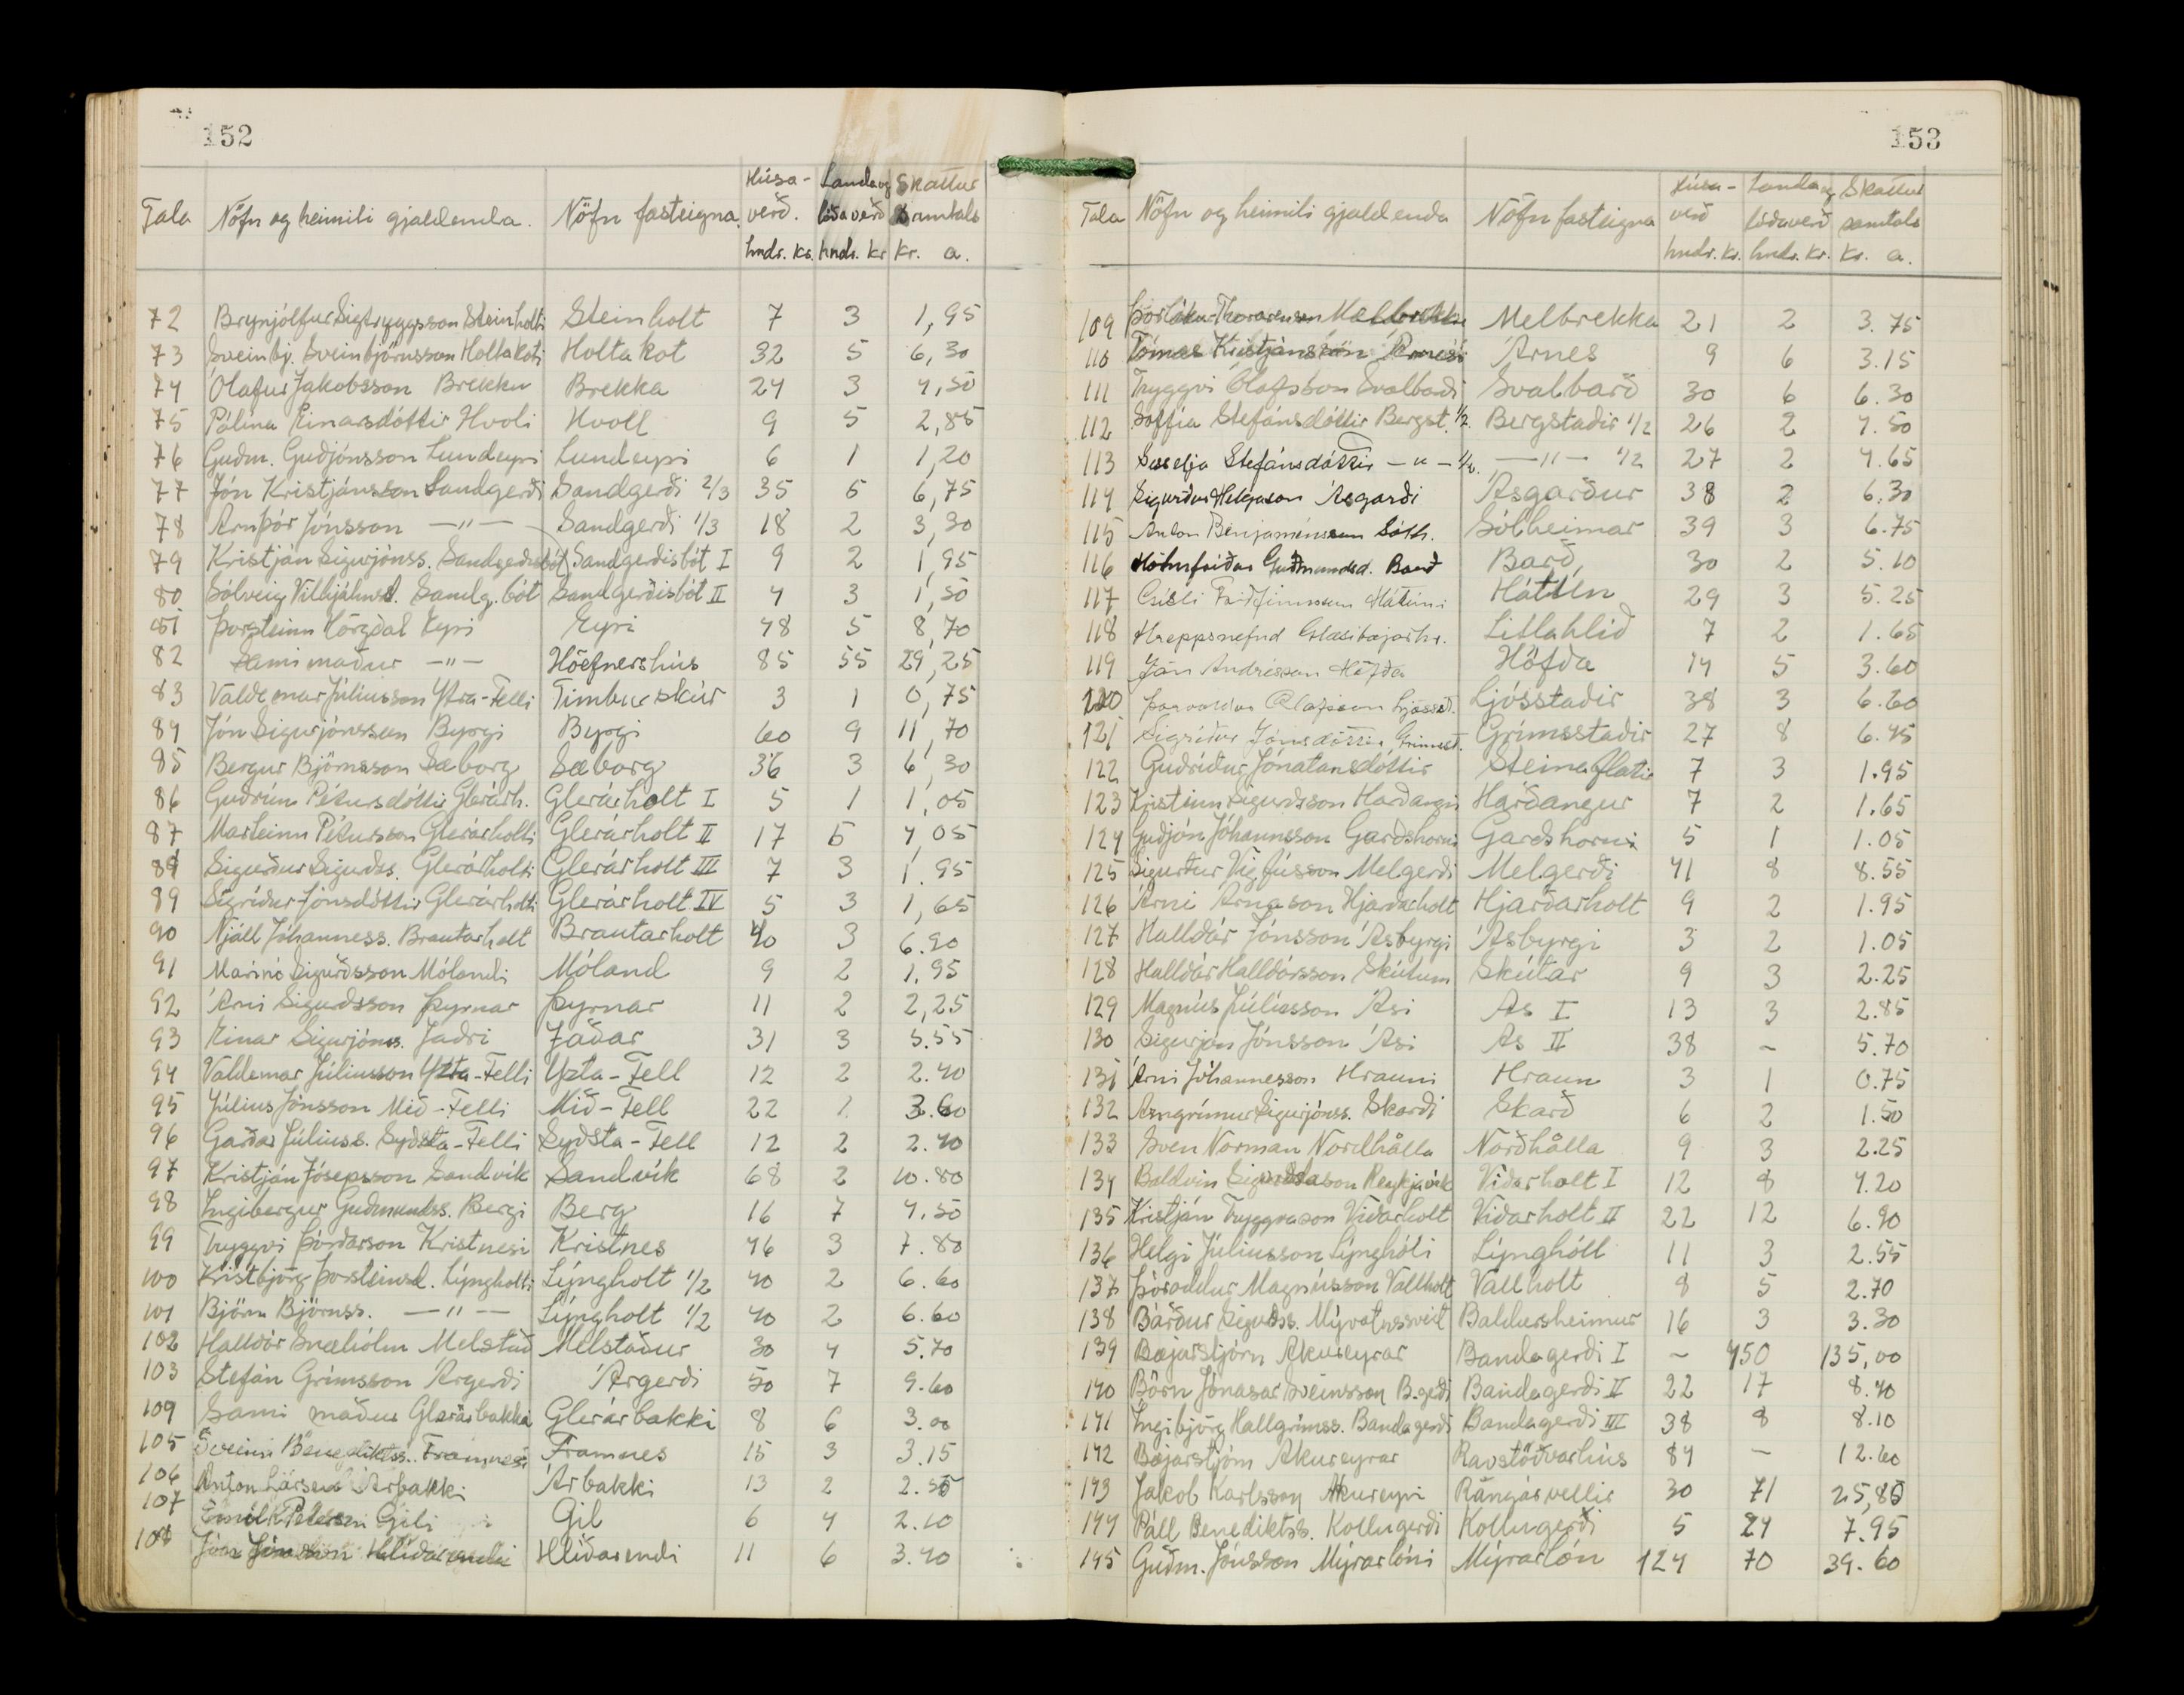 152
Tala Nöfn og heimili gjaldenda. Nöfn fasteigna. Húsaverð. hndr. kr. Landa og lóðaverð hndr. kr Skattur samtals kr. a.
72 Brynjólfur Sigtryggsson Steinholti Steinholt 7 3 1,95
73 Sveinbj. Sveinbjörnsson Holtakoti Holtakot 32 5 6,30
74 Ólafur Jakobsson Brekku Brekka 24 3 4,50
75 Pálína Einarsdóttir Hvoli Hvoll 9 5 2,85
76 Guðm. Guðjónsson Lundeyri Lundeyri 6 1 1,20
77 Jón Kristjánsson Sandgerði Sandgerði 2/3 35 5 6,75
78 Arnþór Jónsson —"— Sandgerði 1/3 18 2 3,30
79 Kristján Sigurjónss. Sandgerðisbót Sandgerðisbót I 9 2 1,95
80 Sólveig Vilhjálmsd. Sandg.bót Sandgerðisbót II 4 3 1,50
81 Þorsteinn Hörgdal Eyri Eyri 48 5 8,70
82 Sami maður —"— Höefnershús 85 55 29,25
83 Valdemar Júlíusson Yzta-Felli Timburskúr 3 1 0,75
84 Jón Sigurjónsson Byrgi Byrgi 60 9 11,70
85 Bergur Björnsson Sæborg Sæborg 36 3 6,30
86 Guðrún Pétursdóttir Glerárh. Glerárholt I 5 1 1,05
87 Marteinn Pétursson Glerárholti Glerárholt II 17 5 4,05
88 Sigurður Sigurðss. Glerárholti Glerárholt III 7 3 1,95
89 Sigríður Jónsdóttir Glerárholti Glerárholt IV 5 3 1,65
90 Njáll Jóhanness. Brautarholt Brautarholt 40 3 6.90
91 Marinó Sigurðsson Mólandi Móland 9 2 1,95
92 Árni Sigurðsson Þyrnar Þyrnar 11 2 2,25
93 Einar Sigurjónss. Jaðri Jaðar 31 3 5.55
94 Valdemar Júlíusson Yzta-Felli Yzta-Fell 12 2 2.40
95 Júlíus Jónsson Mið-Felli Mið-Fell 22 1 3.60
96 Garðar Júlíuss. Syðsta-Felli Syðsta-Fell 12 2 2.40
97 Kristján Jósepsson Sandvík Sandvík 68 2 10.80
98 Ingibergur Guðmundss. Bergi Berg 16 7 4,50
99 Tryggvi Þórðarson Kristnesi Kristnes 46 3 7.80
100 Kristbjörg Þorsteinsd. Lýngholti Lýngholt 1/2 40 2 6.60
101 Björn Björnss. —"— Lýngholt 1/2 40 2 6.60
102 Halldór Snæhólm Melstað Melstaður 30 4 5.70
103 Stefán Grímsson Árgerði Árgerði 50 7 9.60
104 Sami maður Glerárbakka Glerárbakki 8 6 3.00
105 Sveinn Benediktss. Framnesi Framnes 15 3 3.15
106 Anton Lársen Árbakki Árbakki 13 2 2.55
107 Emil Petersen Gili Gil 6 4 2.10
108 Jón Jónsson Hlíðarendi Hlíðarendi 11 6 3.40
153
Tala Nöfn og heimili gjaldenda Nöfn fasteigna Húsaverð hndr. kr. Landa og lóðaverð hndr. kr. Skattur samtals kr. a.
109 Þorlákur Thorarensen Melbrekku Melbrekka 21 2 3.75
110 Tómas Kristjánsson Árnesi Árnes 9 6 3.15
111 Tryggvi Ólafsson Svalbarði Svalbarð 30 6 6.30
112 Soffía Stefánsdóttir Bergst. 1/2. Bergstaðir 1/2 26 2 4.50
113 Sesselja Stefánsdóttir —"— 1/2. —"— 1/2 27 2 4.65
114 Sigurður Helgason Ásgarði Ásgarður 38 2 6.30
115 Anton Benjamínsson Sólh. Sólheimar 39 3 6.75
116 Hólmfríður Guðmundsd. Barð Barð 30 2 5.10
117 Gísli Friðfinnsson Hátúni Hátún 29 3 5.25
118 Hreppsnefnd Glæsibæjarhr. Litlahlíð 7 2 1.65
119 Jón Andrésson Höfða Höfða 14 5 3.60
120 Þorvaldur Ólafsson Ljósst. Ljósstaðir 38 3 6.60
121 Sigríður Jónsdóttir Grímsst. Grímsstaðir 27 8 6.45
122 Guðríður Jónatansdóttir Steinaflatir 7 3 1.95
123 Kristinn Sigurðsson Harðangri Harðangur 7 2 1.65
124 Guðjón Jóhannsson Garðshorni Garðshorni 5 1 1.05
125 Sigurður Vigfússon Melgerði Melgerði 41 8 8.55
126 Árni Árnason Hjarðarholt Hjarðarholt 9 2 1.95
127 Halldór Jónsson Ásbyrgi Ásbyrgi 3 2 1.05
128 Halldór Halldórsson Skútum Skútar 9 3 2.25
129 Magnús Júlíusson Ási Ás I 13 3 2.85
130 Sigurjón Jónsson Ási Ás II 38 - 5.70
131 Árni Jóhannesson Hrauni Hraun 3 1 0.75
132 Arngrímur Sigurjónss. Skarði Skarð 6 2 1.50
133 Sven Norman Nordhålla Norðhålla 9 3 2.25
134 Baldvin Sigurðsson Reykjavík Viðarholt I 12 8 4.20
135 Kristján Tryggvason Viðarholt Viðarholt II 22 12 6.90
136 Helgi Júlíusson Lýnghóli Lýnghóll 11 3 2.55
137 Þóroddur Magnússon Vallholt Vallholt 8 5 2.70
138 Bárður Sigurðss. Mývatnssveit Baldursheimur 16 3 3.30
139 Bæjarstjórn Akureyrar Bandagerði I - 450 135,00
140 Börn Jónasar Sveinsson B.gerði Bandagerði II 22 17 8.40
141 Ingibjörg Hallgrímss. Bandagerði Bandagerði III 38 8 8.10
142 Bæjarstjórn Akureyrar Ravstöðvarhús 84 - 12.60
143 Jakob Karlsson Akureyri Rángárvellir 30 71 25,80
144 Páll Benediktss. Kollugerði Kollugerði 5 24 7.95
145 Guðm. Jónsson Mýrarlóni Mýrarlón 124 70 39.60